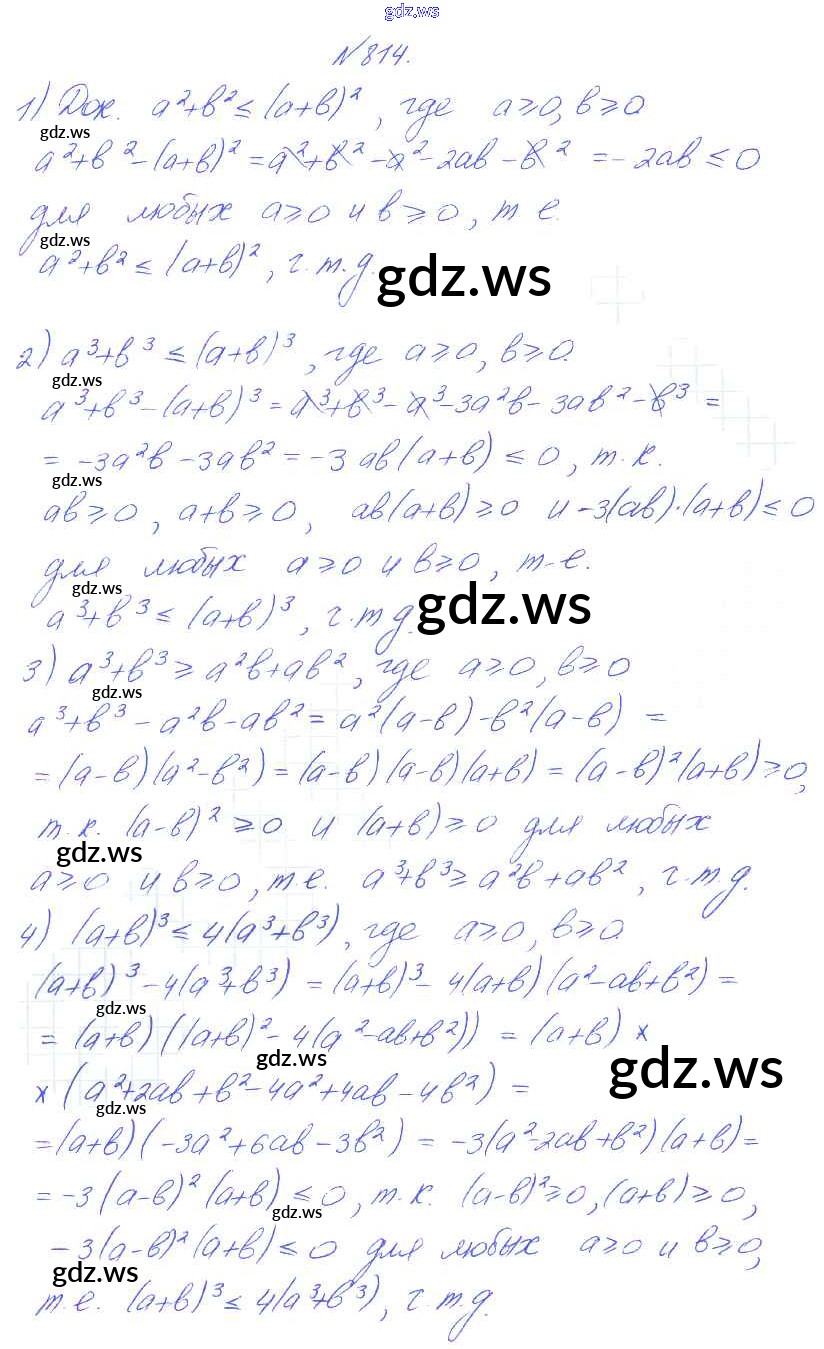 gdz.ws
№814.
1) Док. a²+b² ≤ (a+b)², где a≥0, b≥0
gdz.ws
a²+b²-(a+b)² = a²+b²-a²-2ab-b² = -2ab ≤ 0
для любых a≥0 и b≥0, т е.
gdz.ws
a²+b² ≤ (a+b)², ч.т.д.
gdz.ws
2) a³+b³ ≤ (a+b)³, где a≥0, b≥0.
gdz.ws
a³+b³-(a+b)³ = a³+b³-a³-3a²b-3ab²-b³ =
= -3a²b-3ab² = -3ab(a+b) ≤ 0, т.к.
gdz.ws
ab≥0, a+b≥0, ab(a+b)≥0 и -3(ab)·(a+b)≤0
для любых a≥0 и b≥0, т-е.
gdz.ws
a³+b³ ≤ (a+b)³, ч.т д.
gdz.ws
3) a³+b³ ≥ a²b+ab², где a≥0, b≥0
gdz.ws
a³+b³-a²b-ab² = a²(a-b)-b²(a-b) =
= (a-b)(a²-b²) = (a-b)(a-b)(a+b) = (a-b)²(a+b)≥0,
т.к. (a-b)² ≥0 и (a+b)≥0 для любых
gdz.ws
a≥0 и b≥0, т.е. a³+b³≥a²b+ab², ч.т.д.
4) (a+b)³ ≤ 4(a³+b³), где a≥0, b≥0.
(a+b)³-4(a³+b³) = (a+b)³-4(a+b)(a²-ab+b²) =
gdz.ws
= (a+b)((a+b)²-4(a²-ab+b²)) = (a+b) ×
gdz.ws
gdz.ws
× (a²+2ab+b²-4a²+4ab-4b²) =
gdz.ws
=(a+b)(-3a²+6ab-3b²) = -3(a²-2ab+b²)(a+b)=
= -3(a-b)²(a+b) ≤ 0, т.к. (a-b)²≥0, (a+b)≥0,
gdz.ws
-3(a-b)²(a+b)≤0 для любых a≥0 и b≥0,
gdz.ws
т.е. (a+b)³ ≤ 4(a³+b³), ч.т.д.